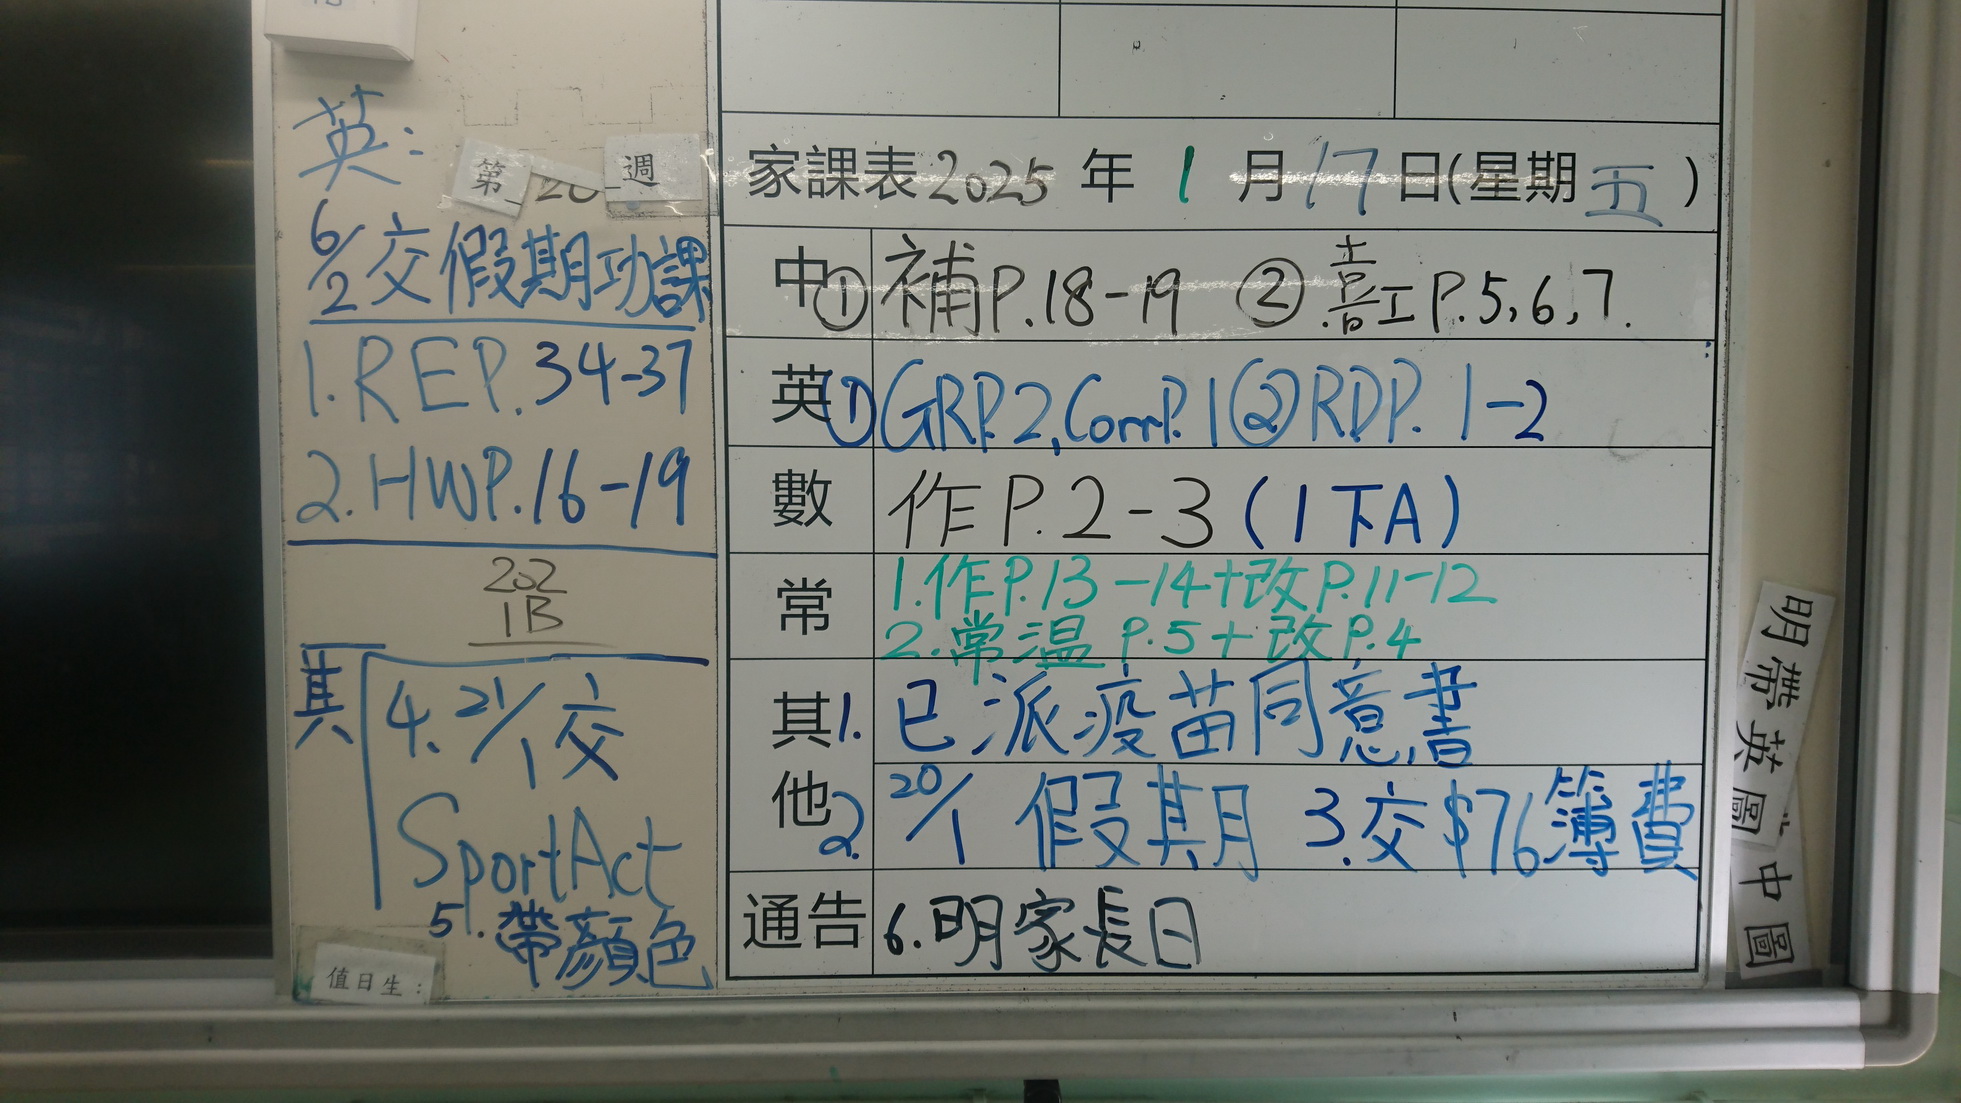 英:
第 20 週
6/2 交假期功課
1. REP. 34-37
2. HWP. 16-19
202
1B
其
4. 21/1 交
SportAct
5. 帶顏色
值日生:
家課表 2025 年 1 月 17 日(星期 五)
中 ① 補P.18-19 ② 喜工P.5,6,7.
英 ① GRP.2, Com P.1 ② RDP. 1-2
數 作 P.2-3 (1下A)
常 1.作P.13-14+改P.11-12
2.常溫 P.5+改P.4
其他 1. 已派疫苗同意書
2. 20/1 假期 3.交$76簿費
通告 6.明家長日
明帶英圖
中圖